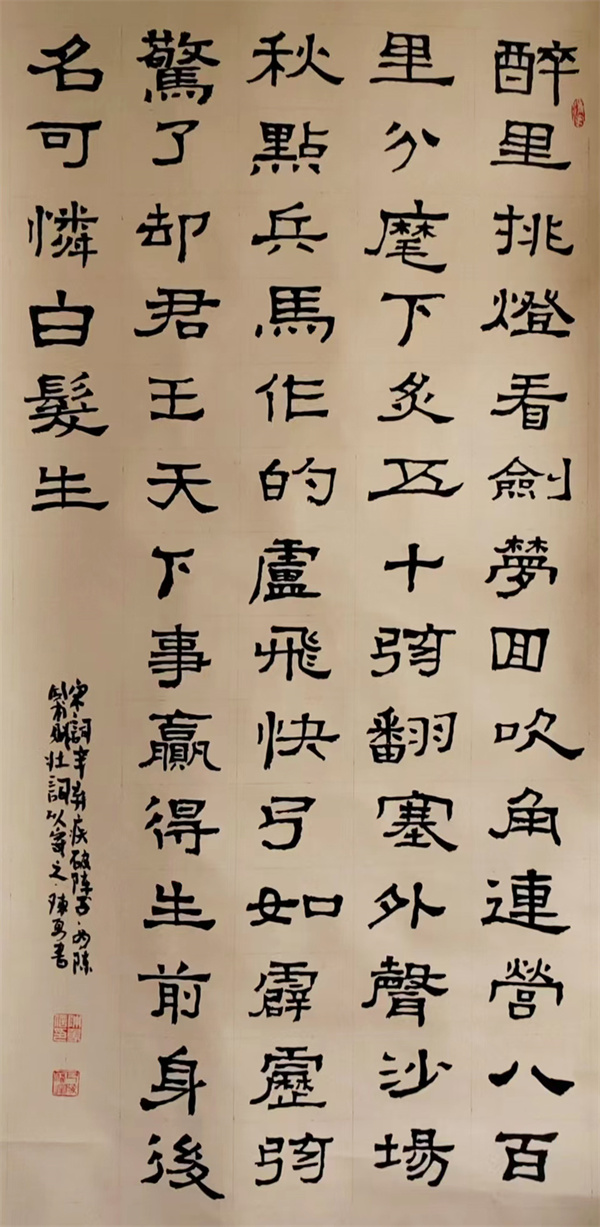 醉里挑燈看劍夢回吹角連營八百
里分麾下炙五十弦翻塞外聲沙場
秋點兵馬作的盧飛快弓如霹靂弦
驚了却君王天下事贏得生前身後
名可憐白髮生
宋詞辛弃疾破陣子為陳
同甫賦壯詞以寄之陳書